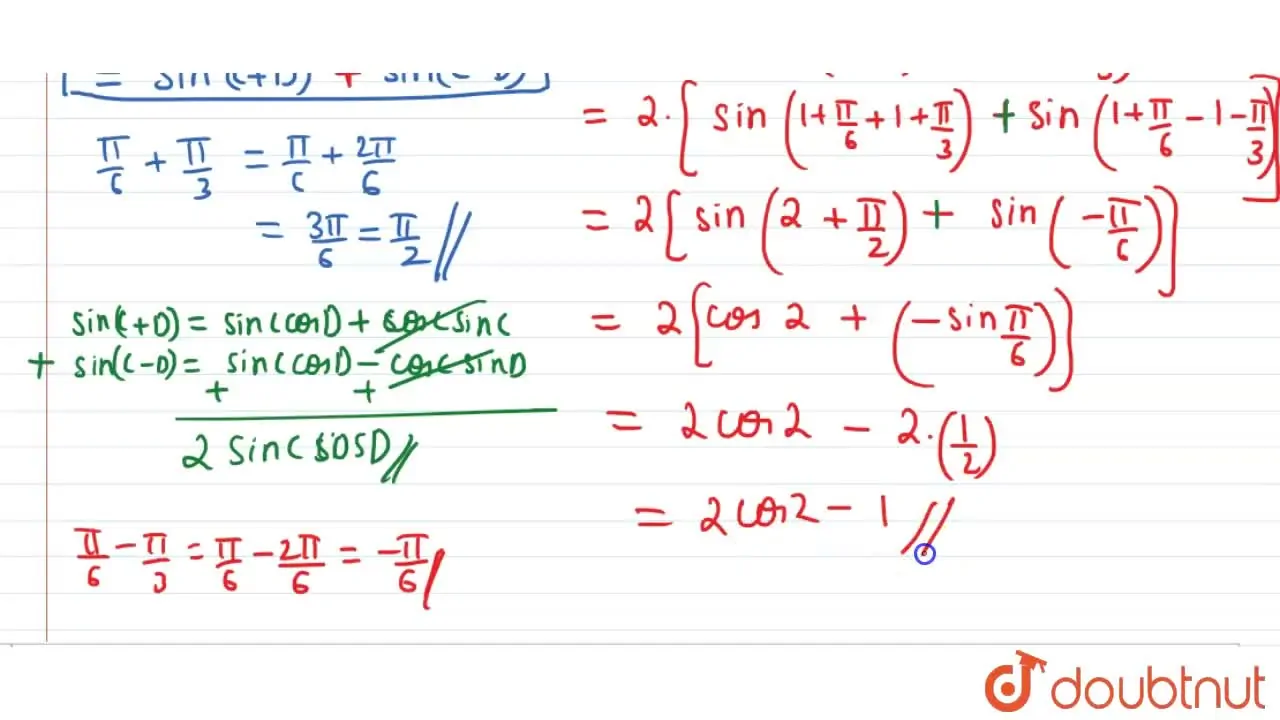 = sin(C+D) + sin(C-D)
π/6 + π/3 = π/6 + 2π/6
= 3π/6 = π/2 //
sin(C+D) = sinC cosD + cosC sinC
+ sin(C-D) = sinC cosD - cosC sinD
+ +
2 sinC cosD //
π/6 - π/3 = π/6 - 2π/6 = -π/6 /
= 2.[ sin (1+π/6+1+π/3) + sin (1+π/6-1-π/3)]
= 2[ sin (2 + π/2) + sin (-π/6)]
= 2[cos 2 + (-sin π/6)]
= 2 cos 2 - 2.(1/2)
= 2 cos 2 - 1 //
doubtnut